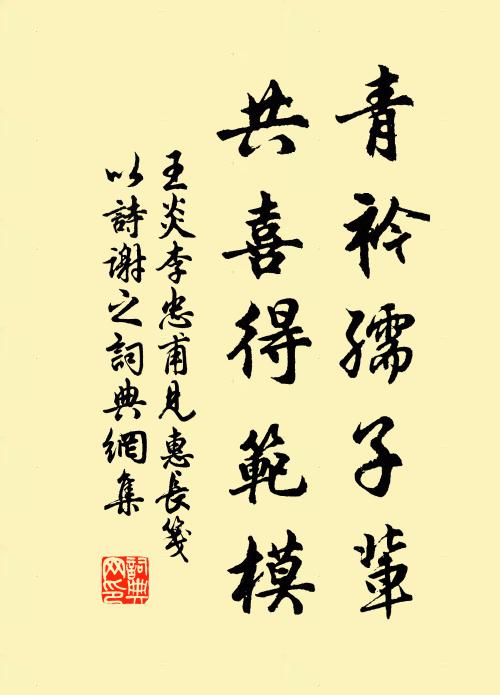 青衿孺子輩
共喜得範模
王炎李忠甫見惠長箋
以詩謝之詞典網集
詞典網印